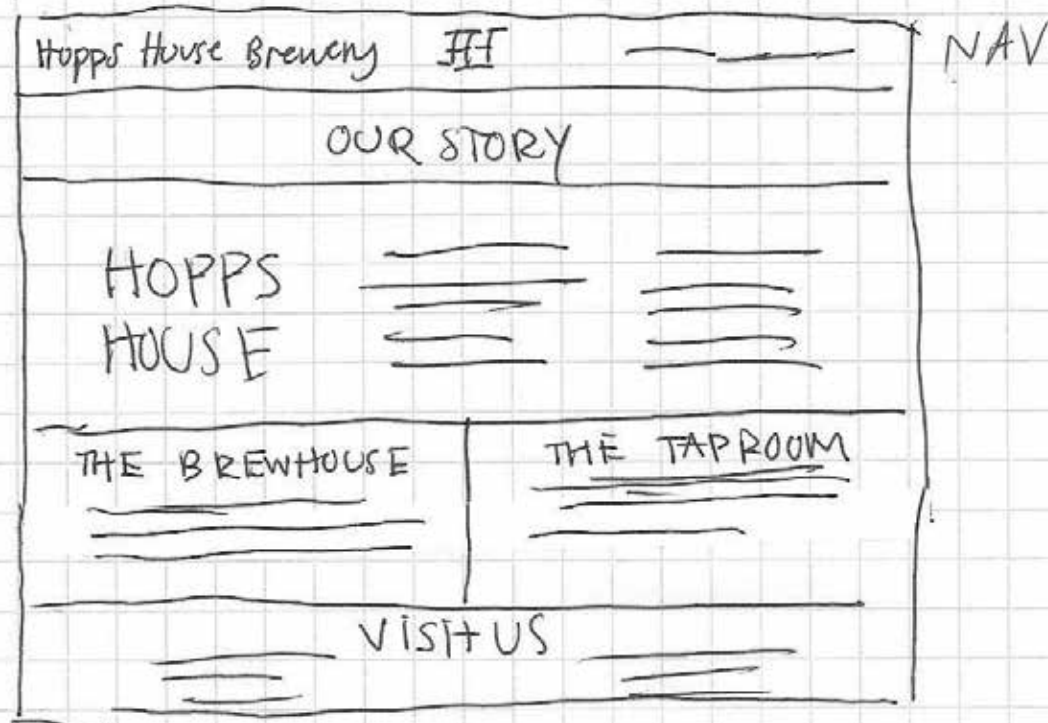 Hopps House Brewery HH
NAV
OUR STORY
HOPPS
HOUSE
THE BREWHOUSE
THE TAPROOM
VISIT US